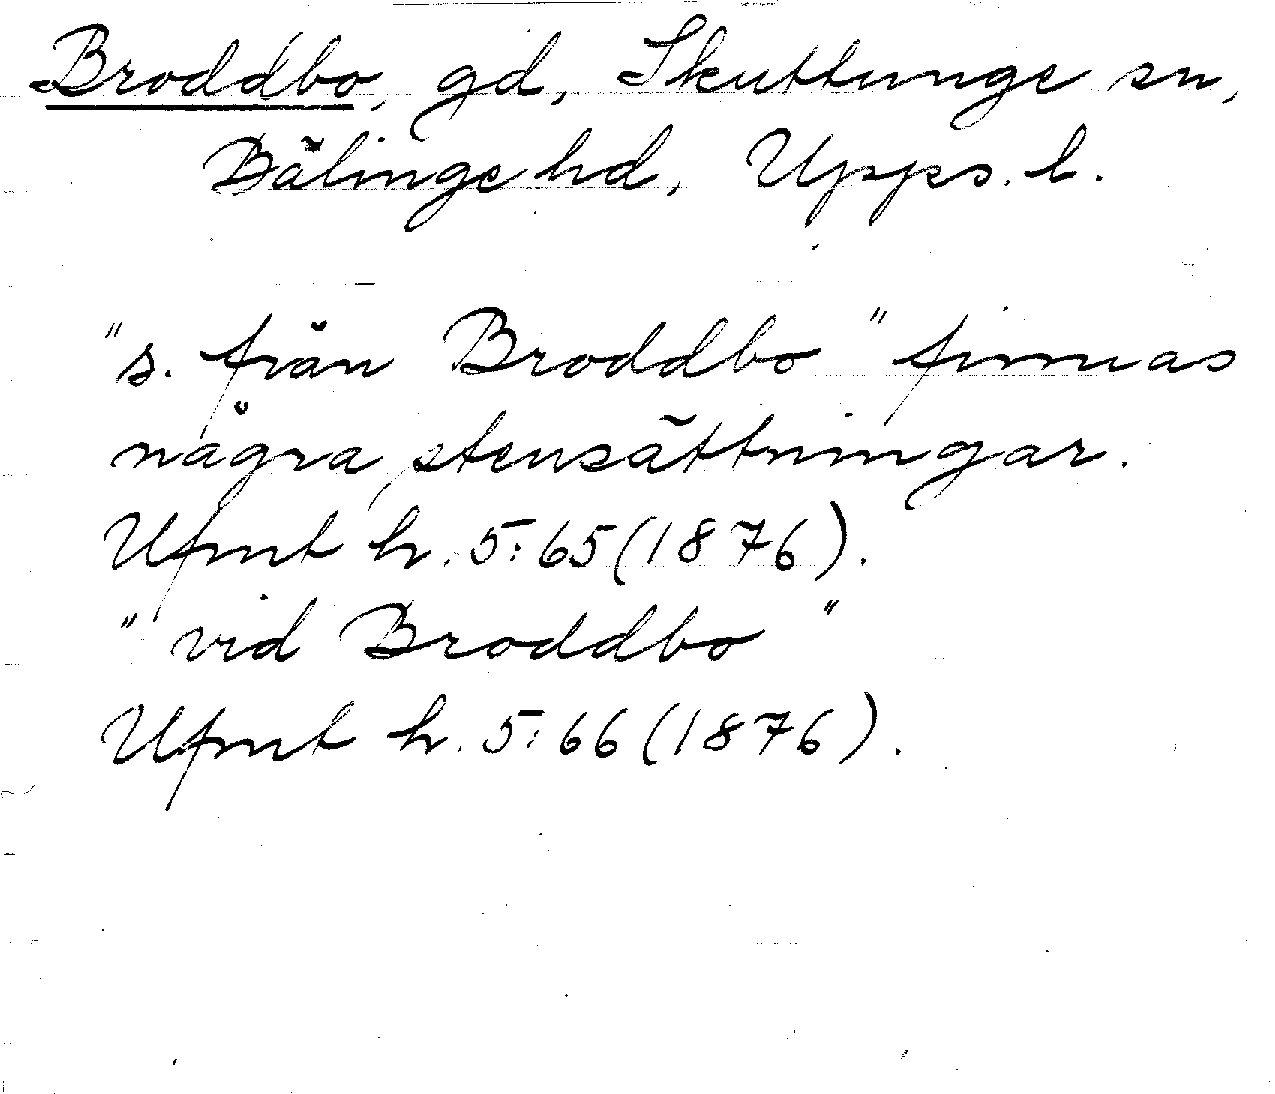 Broddbo, gd, Skuttunge sn,
Bälinge hd, Upps. l.
"s. från Broddbo" finnas
några stensättningar.
Ufmt h. 5:65 (1876).
"vid Broddbo"
Ufmt h. 5:66 (1876).